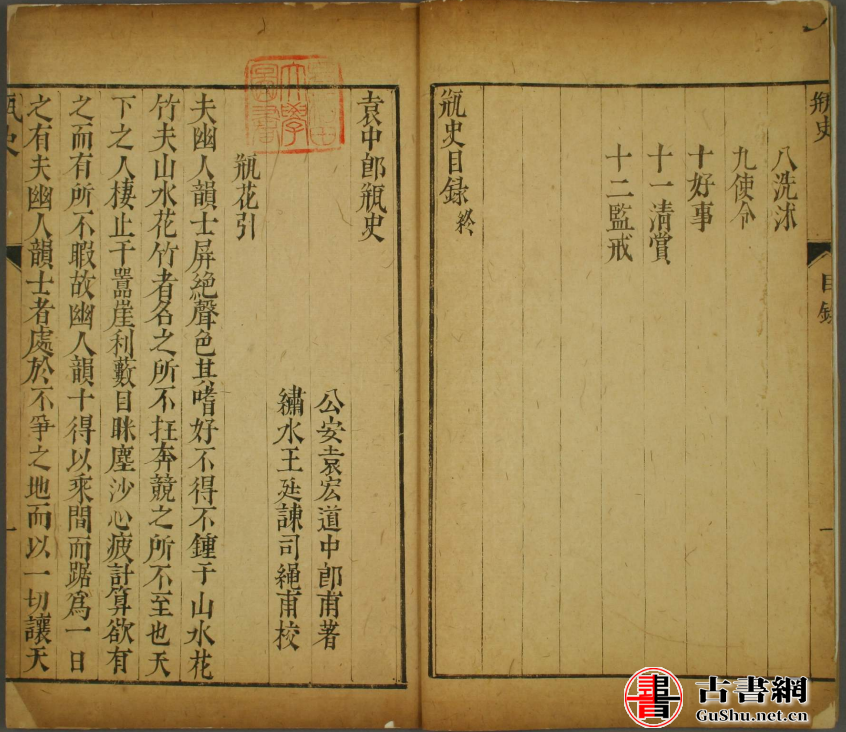 瓶史
目錄
一
八洗沐
九使令
十好事
十一清賞
十二監戒
瓶史目錄終
袁中郎瓶史
公安袁宏道中郎甫著
繡水王廷諫司繩甫校
瓶花引
夫幽人韻士屏絕聲色其嗜好不得不鍾于山水花
竹夫山水花竹者名之所不在奔競之所不至也天
下之人棲止于嚻崖利藪目眯塵沙心疲計算欲有
之而有所不暇故幽人韻士得以乘間而踞爲一日
之有夫幽人韻士者處於不爭之地而以一切讓天
瓶史
一
書
古書網
GuShu.net.cn